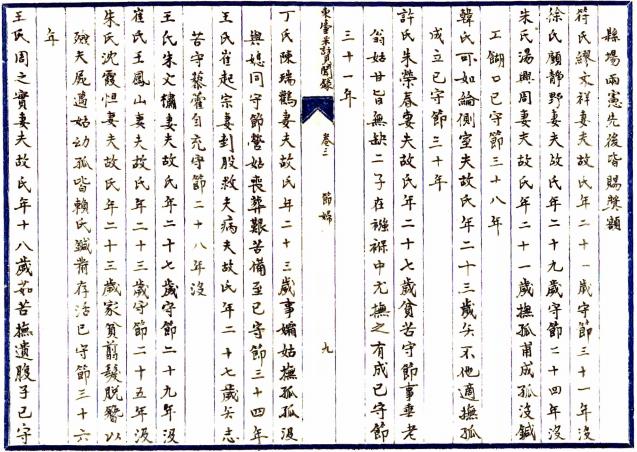 縣場兩憲先後皆賜獎額
符氏繆文祥妻夫故氏年二十一歲守節三十一年沒
徐氏顧靜野妻夫故氏年二十九歲守節二十四年沒
朱氏湯興周妻夫故氏年二十一歲撫孤甫成孤沒鍼
工餬口已守節三十八年
韓氏可如論側室夫故氏年二十三歲矢不他適撫孤
成立已守節三十年
許氏朱榮春妻夫故氏年二十七歲貧苦守節事耄老
翁姑甘旨無缺二子在襁褓中尤撫之有成已守節
三十一年
東臺采訪見聞錄 卷三 節婦 九
丁氏陳瑞鶴妻夫故氏年二十三歲事孀姑撫孤孤沒
與媳同守節營姑喪葬艱苦備至已守節三十四年
王氏崔起宗妻刲股救夫病夫故氏年二十七歲矢志
苦守藜藿自充守節二十八年沒
王氏朱文櫹妻夫故氏年二十七歲守節二十九年沒
崔氏王鳳山妻夫故氏年二十三歲守節二十五年沒
朱氏沈霞怛妻夫故氏年二十三歲家貧翦髮脫簪以
殮夫屍遺姑幼孤皆賴氏鍼黹存活已守節三十六
年
王氏周之實妻夫故氏年十八歲茹苦撫遺腹子已守